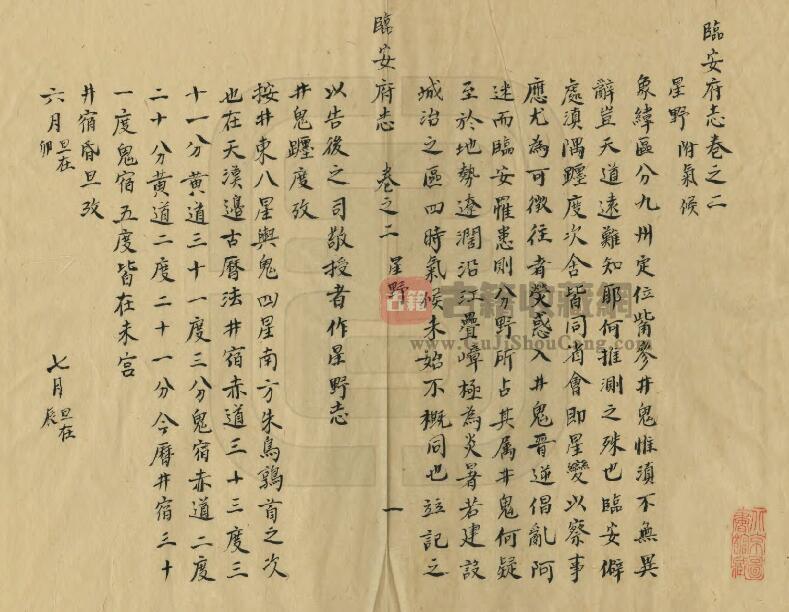 臨安府志卷之二
星野 附氣候
象緯區分九州定位觜參井鬼惟滇不無異
辭豈天道遠難知耶何推測之殊也臨安僻
處滇隅躔度次舍皆同省會即星變以察事
應尤為可徵往者熒惑入井鬼晉逆倡亂阿
迷而臨安罹患則分野所占其属井鬼何疑
至於地勢遼濶沿江疊嶂極為炎暑若建設
城治之區四時氣候未始不概同也並記之
臨安府志 卷之二 星野 一
以告後之司敬授者作星野志
井鬼躔度攷
按井東八星輿鬼四星南方朱鳥鶉首之次
也在天漢邊古曆法井宿赤道三十三度三
十一分黄道三十一度三分鬼宿赤道二度
二十分黄道二度二十一分今曆井宿三十
一度鬼宿五度皆在未宫
井宿昏旦攷
六月旦在卯 七月旦在辰
古籍
古籍收藏網
www.GuJiShouCang.com